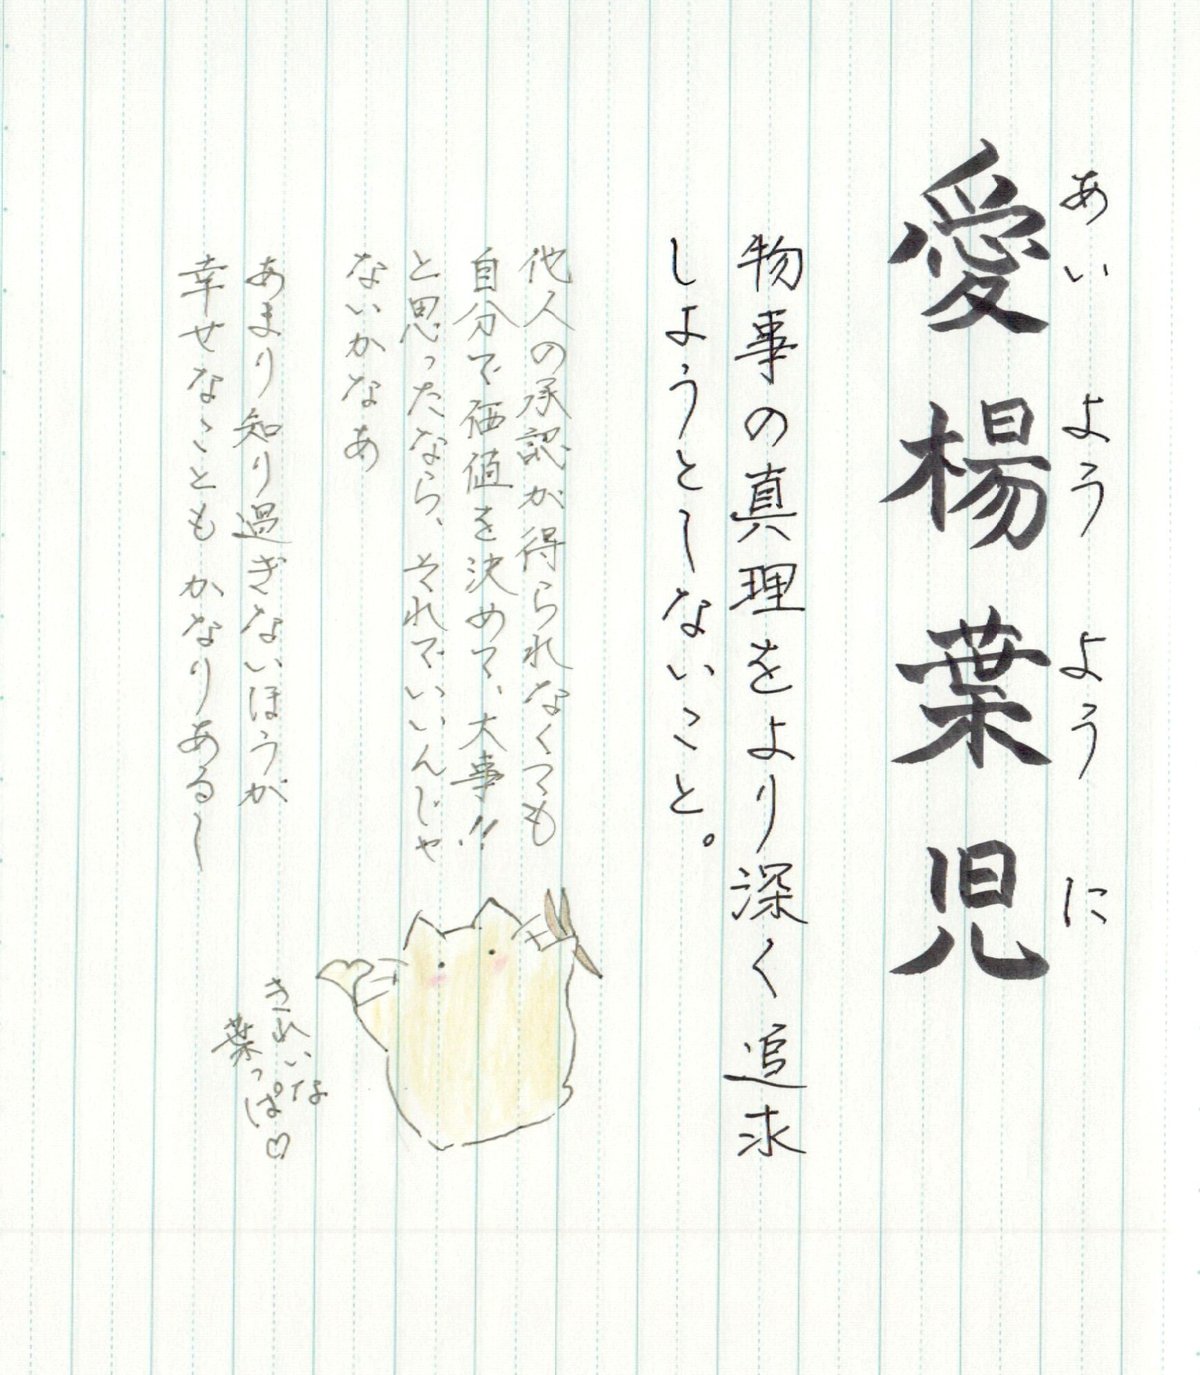 愛楊葉児
あい よう よう に
物事の真理をより深く追求
しようとしないこと。
他人の承認が得られなくても
自分で価値を決めて、大事!!
と思ったなら、それでいいんじゃ
ないかなあ
あまり知り過ぎないほうが
幸せなことも かなりあるー
きれいな
葉っぱ♡